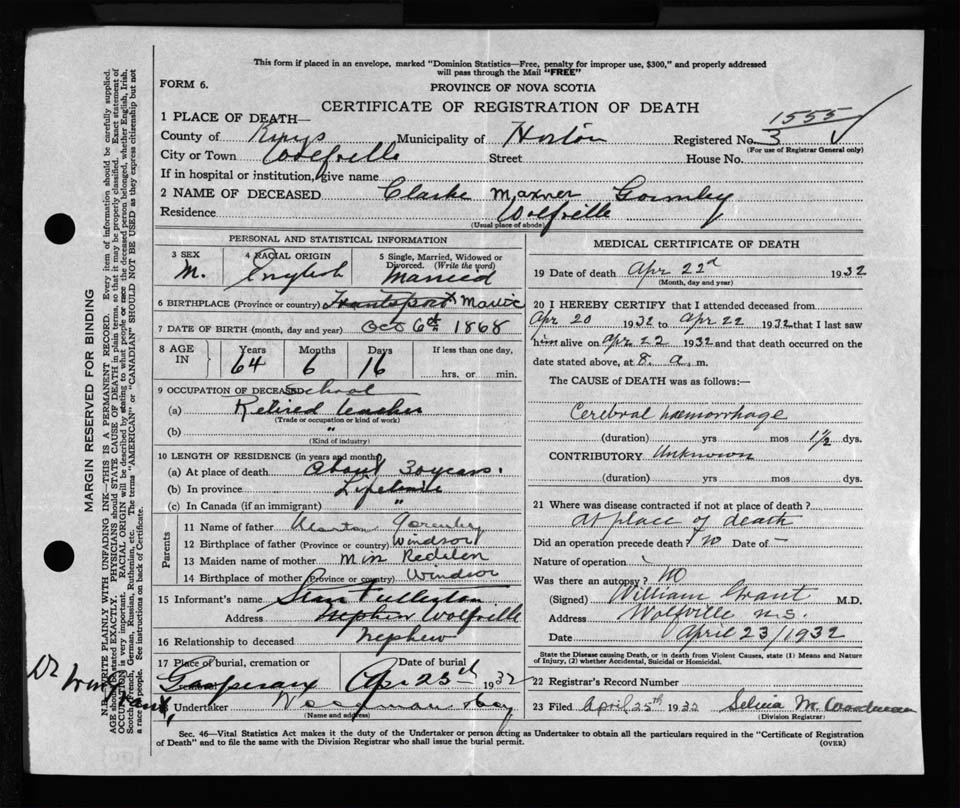 This form if placed in an envelope, marked "Dominion Statistics—Free, penalty for improper use, $300," and properly addressed
will pass through the Mail "FREE"
FORM 6.
PROVINCE OF NOVA SCOTIA
CERTIFICATE OF REGISTRATION OF DEATH
1555
1 PLACE OF DEATH—
County of Kings Municipality of Horton Registered No. 3
(For use of Registrar General only)
City or Town Wolfville Street House No.
If in hospital or institution, give name
2 NAME OF DECEASED Clarke Maxner Gormley
Residence Wolfville
(Usual place of abode)
PERSONAL AND STATISTICAL INFORMATION
3 SEX M.
4 RACIAL ORIGIN English
5 Single, Married, Widowed or Divorced. (Write the word) Married
6 BIRTHPLACE (Province or country) Hantsport
7 DATE OF BIRTH (month, day and year) Oct 6th 1868
8 AGE IN Years 64 Months 6 Days 16 If less than one day, hrs. or min.
9 OCCUPATION OF DECEASED School
(a) Retired teacher
(Trade or occupation or kind of work)
(b) "
(Kind of industry)
10 LENGTH OF RESIDENCE (in years and months)
(a) At place of death About 30 years.
(b) In province Lifetime
(c) In Canada (if an immigrant) "
Parents
11 Name of father
12 Birthplace of father (Province or country) Windsor
13 Maiden name of mother
14 Birthplace of mother (Province or country) Windsor
15 Informant's name Fullerton
Address Nephew Wolfville
16 Relationship to deceased Nephew
17 Place of burial, cremation or Gaspereaux
Date of burial Apr 25th 1932
18 Undertaker Woodman
(Name and address)
MEDICAL CERTIFICATE OF DEATH
19 Date of death Apr 22d 1932
(Month, day and year)
20 I HEREBY CERTIFY that I attended deceased from
Apr 20 1932 to Apr 22 1932 that I last saw
him alive on Apr 22 1932 and that death occurred on the
date stated above, at 8. a. m.
The CAUSE of DEATH was as follows:—
Cerebral haemorrhage
(duration) yrs mos 1½ dys.
CONTRIBUTORY Unknown
(duration) yrs mos dys.
21 Where was disease contracted if not at place of death?
At place of death
Did an operation precede death? No Date of —
Nature of operation
Was there an autopsy? No
(Signed) William Grant M.D.
Address Wolfville N.S.
Date April 23/1932
State the Disease causing Death, or in death from Violent Causes, state (1) Means and
Nature of Injury, (2) whether Accidental, Suicidal or Homicidal.
22 Registrar's Record Number
23 Filed April 25th 1932 Selina M. Woodman
(Division Registrar)
Sec. 46—Vital Statistics Act makes it the duty of the Undertaker or person acting as Undertaker to obtain all the particulars required in the "Certificate of Registration
of Death" and to file the same with the Division Registrar who shall issue the burial permit.
(OVER)
MARGIN RESERVED FOR BINDING
N.B.—WRITE PLAINLY WITH UNFADING INK—THIS IS A PERMANENT RECORD. Every item of information should be carefully supplied.
AGE should be stated EXACTLY. PHYSICIANS should STATE CAUSE OF DEATH in plain terms, so that it may be properly classified. Exact statement of
OCCUPATION is very important. RACIAL ORIGIN will be described by stating to what people or race the deceased person belonged, whether English, Irish,
Scotch, French, German, Russian, Ruthenian, etc. The terms "AMERICAN" or "CANADIAN" SHOULD NOT BE USED as they express citizenship but not
a race or people. See instructions on back of Certificate.